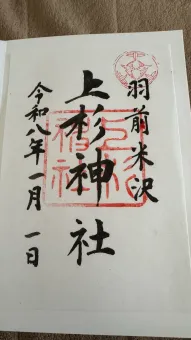 羽前米沢
上杉神社
令和八年一月一日
上杉神社